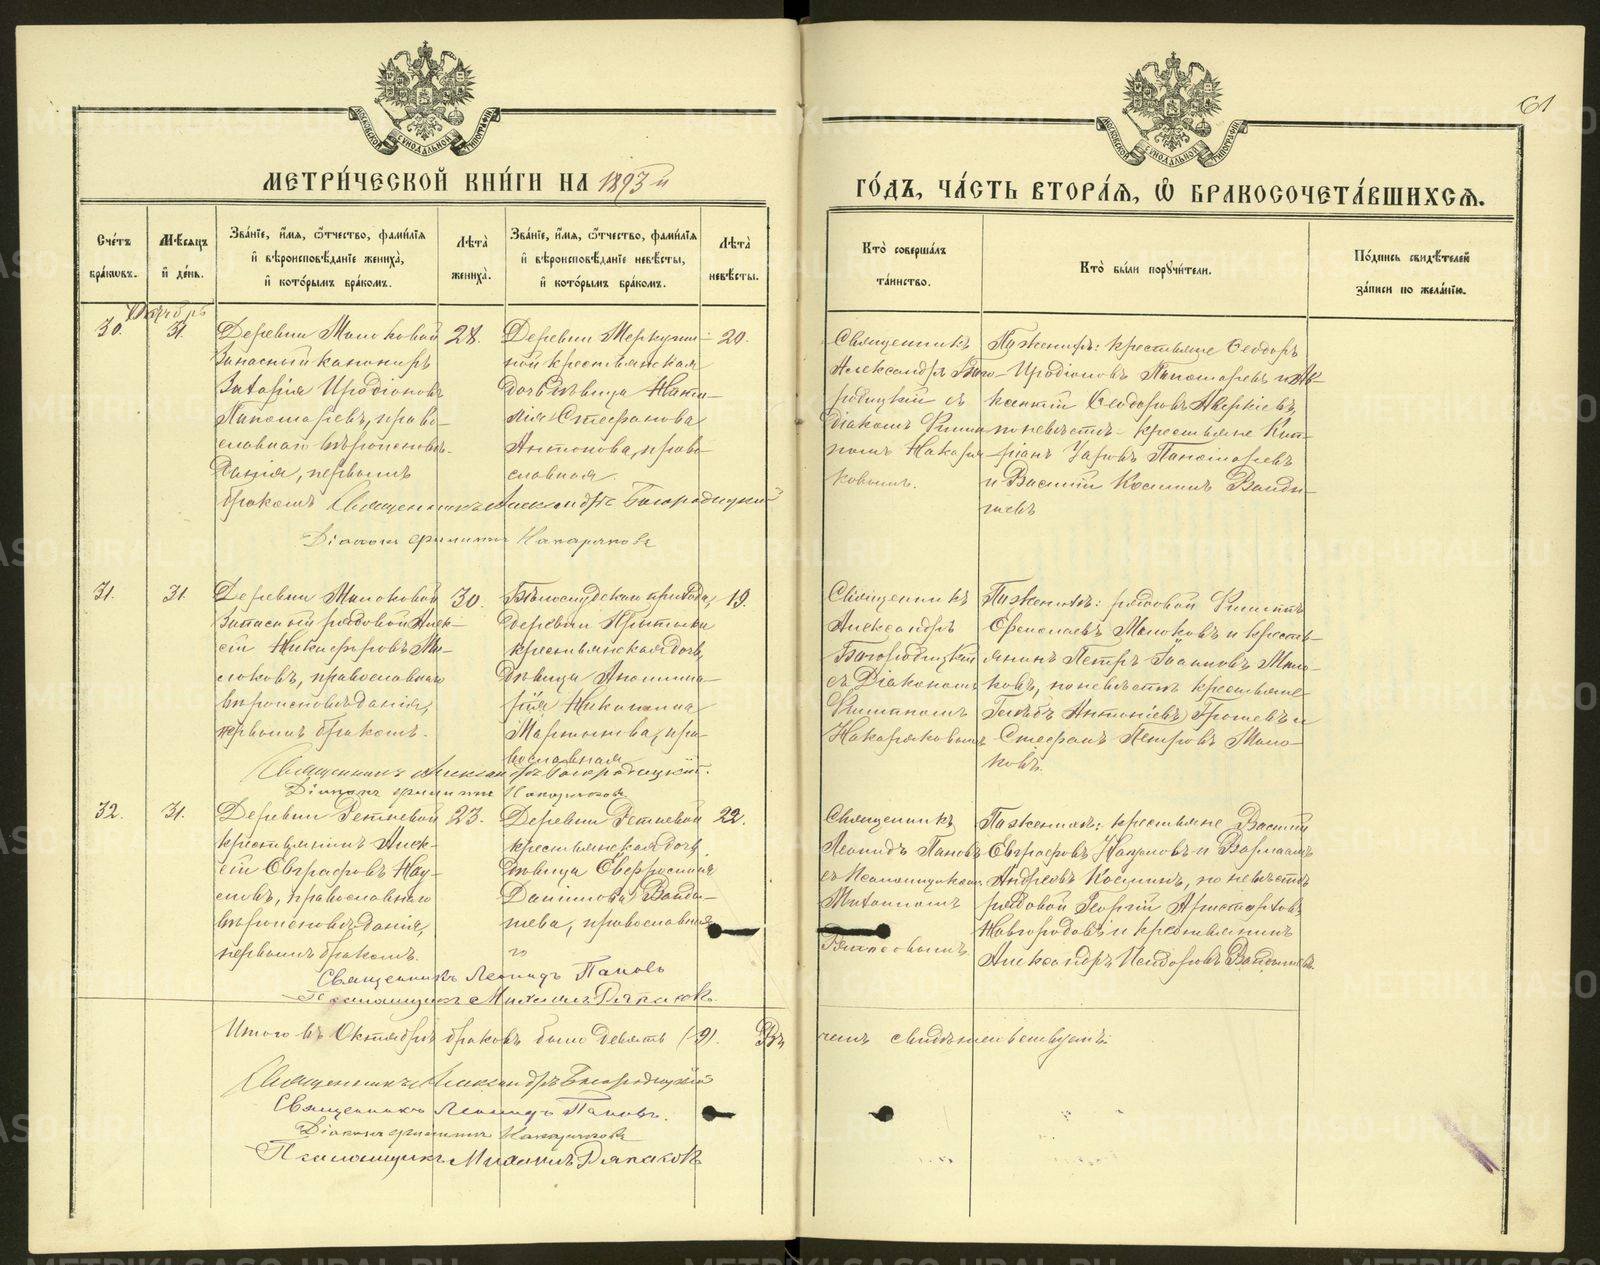 61
МЕТРИЧЕСКОЙ КНИГИ НА 1893 й
ГОДЪ, ЧАСТЬ ВТОРАЯ, Ѡ БРАКОСОЧЕТАВШИХСЯ.
Счетъ браковъ.
Мѣсяцъ и день.
Званіе, имя, отчество, фамилія и вѣроисповѣданіе жениха, и которымъ бракомъ.
Лѣта жениха.
Званіе, имя, отчество, фамилія и вѣроисповѣданіе невѣсты, и которымъ бракомъ.
Лѣта невѣсты.
Кто совершалъ таинство.
Кто были поручители.
Подпись свидѣтелей записи по желанію.
Октябрь
30.
31.
Деревни Молоковой
Запасный канониръ
Иродіоновъ
Пономаревъ, право-
славнаго вѣроисповѣ-
данія, первымъ
бракомъ
28.
Деревни
ной крестьянская
дочь дѣвица Ната-
лія Стефанова
Антонова, право-
славная.
20.
Священникъ
Александръ Бого-
родицкій съ
діакономъ Филип-
помъ Накаря-
ковымъ.
По женихѣ: крестьяне Ѳеодоръ
Иродіоновъ Пономаревъ и Ав-
ксентій Ѳеодоровъ Аверкіевъ,
по невѣстѣ - крестьяне Кип-
ріанъ Уаровъ Пономаревъ
и Василій Косминъ Ванди-
шевъ
Священникъ Александръ Богородицкій
Діаконъ Филиппъ Накаряковъ
31.
31.
Деревни Молоковой
запасный рядовой Алек-
сѣй Никифоровъ Мо-
локовъ, православнаго
вѣроисповѣданія,
первымъ бракомъ.
30.
Бѣлослудскаго прихода,
деревни
крестьянская дочь,
дѣвица Аполлина-
рія Николаева
Мартынова, пра-
вославная
19.
Священникъ
Александръ
Богородицкій
съ Діакономъ
Филиппомъ
Накаряковымъ
По женихѣ: рядовой Филиппъ
Ермолаевъ Молоковъ и кресть-
янинъ Петръ Іоанновъ Моло-
ковъ, по невѣстѣ крестьяне
Глѣбъ Антоніевъ и
Стефанъ Петровъ Моло-
ковъ.
Священникъ Александръ Богородицкій.
Діаконъ Филиппъ Накаряковъ
32.
31.
Деревни Ретневой
крестьянинъ Алек-
сѣй Евграфовъ Нау-
мовъ, православнаго
вѣроисповѣданія,
первымъ бракомъ.
23.
Деревни Ретневой
крестьянская дочь,
дѣвица Евфросинія
Даніилова Ванди-
шева, православная
22.
Священникъ
Леонидъ Поповъ
съ Псаломщикомъ
Михаиломъ
Ряпасовымъ
По женихѣ: крестьяне Василій
Евграфовъ Наумовъ и Варлаамъ
Андреевъ Косминъ, по невѣстѣ
рядовой Георгій Аристарховъ
Новгородовъ и крестьянинъ
Александръ Исидоровъ Вандышевъ.
Священникъ Леонидъ Поповъ
Псаломщикъ Михаилъ Ряпасовъ.
Итого въ Октябрѣ браковъ было девять (9). Въ
чемъ свидѣтельствуемъ:
Священникъ Александръ Богородицкій
Священникъ Леонидъ Поповъ.
Діаконъ Филиппъ Накаряковъ
Псаломщикъ Михаилъ Ряпасовъ
METRIKI.GASO-URAL.RU